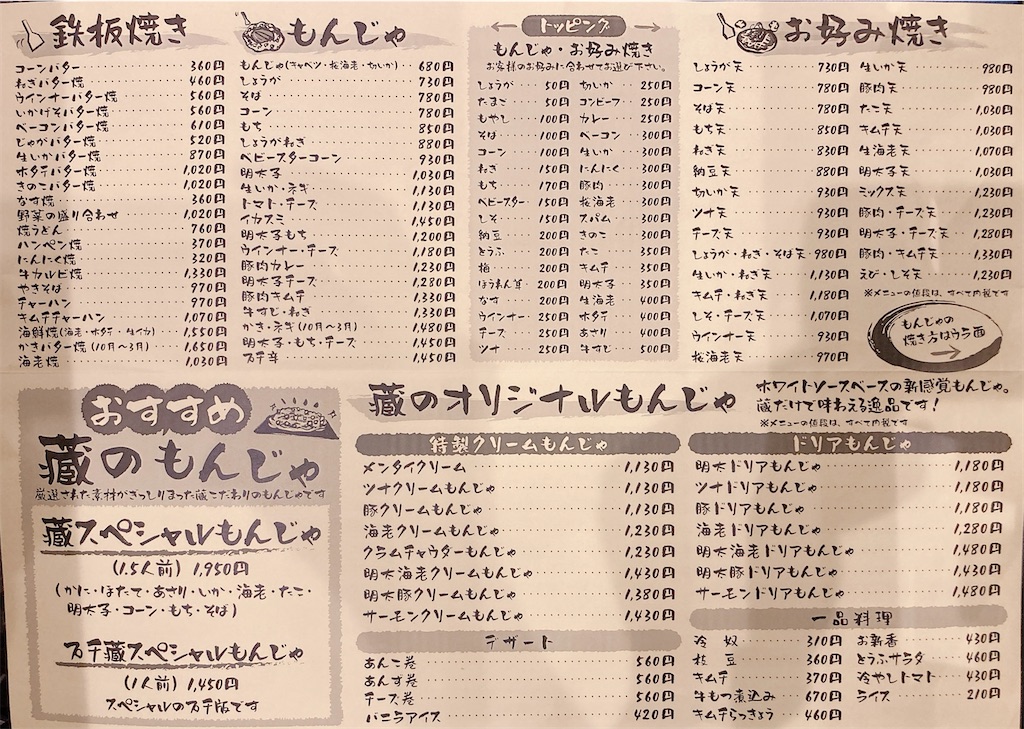 鉄板焼き
コーンバター 360円
ねぎバター焼 460円
ウインナーバター焼 560円
いかげそバター焼 560円
ベーコンバター焼 610円
じゃがバター焼 520円
生いかバター焼 870円
ホタテバター焼 1,020円
きのこバター焼 1,020円
なす焼 360円
野菜の盛り合わせ 1,020円
焼うどん 760円
ハンペン焼 370円
にんにく焼 320円
牛カルビ焼 1,330円
やきそば 970円
チャーハン 970円
キムチチャーハン 1,070円
海鮮焼(海老・ホタテ・生イカ) 1,550円
かきバター焼(10月〜3月) 1,650円
海老焼 1,030円
もんじゃ
もんじゃ(キャベツ・桜海老・切いか) 680円
しょうが 730円
そば 780円
コーン 780円
もち 850円
しょうがねぎ 880円
ベビースターコーン 930円
明太子 1,030円
生いか・ネギ 1,130円
トマト・チーズ 1,130円
イカスミ 1,450円
明太子もち 1,200円
ウインナー・チーズ 1,180円
豚肉カレー 1,230円
明太子チーズ 1,280円
豚肉キムチ 1,330円
牛すじ・ねぎ 1,330円
かき・ネギ(10月〜3月) 1,480円
明太子・もち・チーズ 1,450円
プチ辛 1,450円
トッピング
もんじゃ・お好み焼き
お客様のお好みに合わせてお選び下さい。
しょうが 50円 切いか 250円
たまご 50円 コンビーフ 250円
もやし 100円 カレー 250円
そば 100円 ベーコン 300円
コーン 100円 生いか 300円
ねぎ 150円 にんにく 300円
もち 170円 豚肉 300円
ベビースター 150円 桜海老 300円
しそ 150円 スパム 300円
納豆 200円 きのこ 300円
とうふ 200円 たこ 350円
梅 200円 キムチ 350円
ほうれん草 200円 明太子 350円
なす 200円 生海老 400円
ウインナー 250円 ホタテ 400円
チーズ 250円 あさり 400円
ツナ 250円 牛すじ 500円
お好み焼き
しょうが天 730円 生いか天 980円
コーン天 780円 豚肉天 980円
そば天 780円 たこ天 1,030円
もち天 850円 キムチ天 1,030円
ねぎ天 830円 生海老天 1,070円
納豆天 880円 明太子天 1,030円
切いか天 930円 ミックス天 1,230円
ツナ天 930円 豚肉・チーズ天 1,230円
チーズ天 930円 明太子・チーズ天 1,280円
しょうが・ねぎ・そば天 980円 豚肉・キムチ天 1,330円
生いか・ねぎ天 1,130円 えび・しそ天 1,230円
キムチ・ねぎ天 1,180円
しそ・チーズ天 1,070円
ウインナー天 930円
桜海老天 970円
※メニューの値段は、すべて内税です
もんじゃの
焼き方はウラ面
おすすめ
蔵のもんじゃ
厳選された素材がぎっしりつまった蔵こだわりのもんじゃです
蔵スペシャルもんじゃ
(1.5人前) 1,950円
(かに・ほたて・あさり・いか・海老・たこ・
明太子・コーン・もち・そば)
プチ蔵スペシャルもんじゃ
(1人前) 1,450円
スペシャルのプチ版です
蔵のオリジナルもんじゃ
ホワイトソースベースの新感覚もんじゃ。
蔵だけで味わえる逸品です!
※メニューの値段は、すべて内税です
特製クリームもんじゃ
メンタイクリーム 1,130円
ツナクリームもんじゃ 1,130円
豚クリームもんじゃ 1,130円
海老クリームもんじゃ 1,230円
クラムチャウダーもんじゃ 1,230円
明太海老クリームもんじゃ 1,430円
明太豚クリームもんじゃ 1,380円
サーモンクリームもんじゃ 1,430円
デザート
あんこ巻 560円
あんず巻 560円
チーズ巻 560円
バニラアイス 420円
ドリアもんじゃ
明太ドリアもんじゃ 1,180円
ツナドリアもんじゃ 1,180円
豚ドリアもんじゃ 1,180円
海老ドリアもんじゃ 1,280円
明太海老ドリアもんじゃ 1,480円
明太豚ドリアもんじゃ 1,430円
サーモンドリアもんじゃ 1,480円
一品料理
冷奴 310円 お新香 430円
枝豆 360円 とうふサラダ 460円
キムチ 370円 冷やしトマト 430円
牛もつ煮込み 670円 ライス 210円
キムチらっきょう 460円